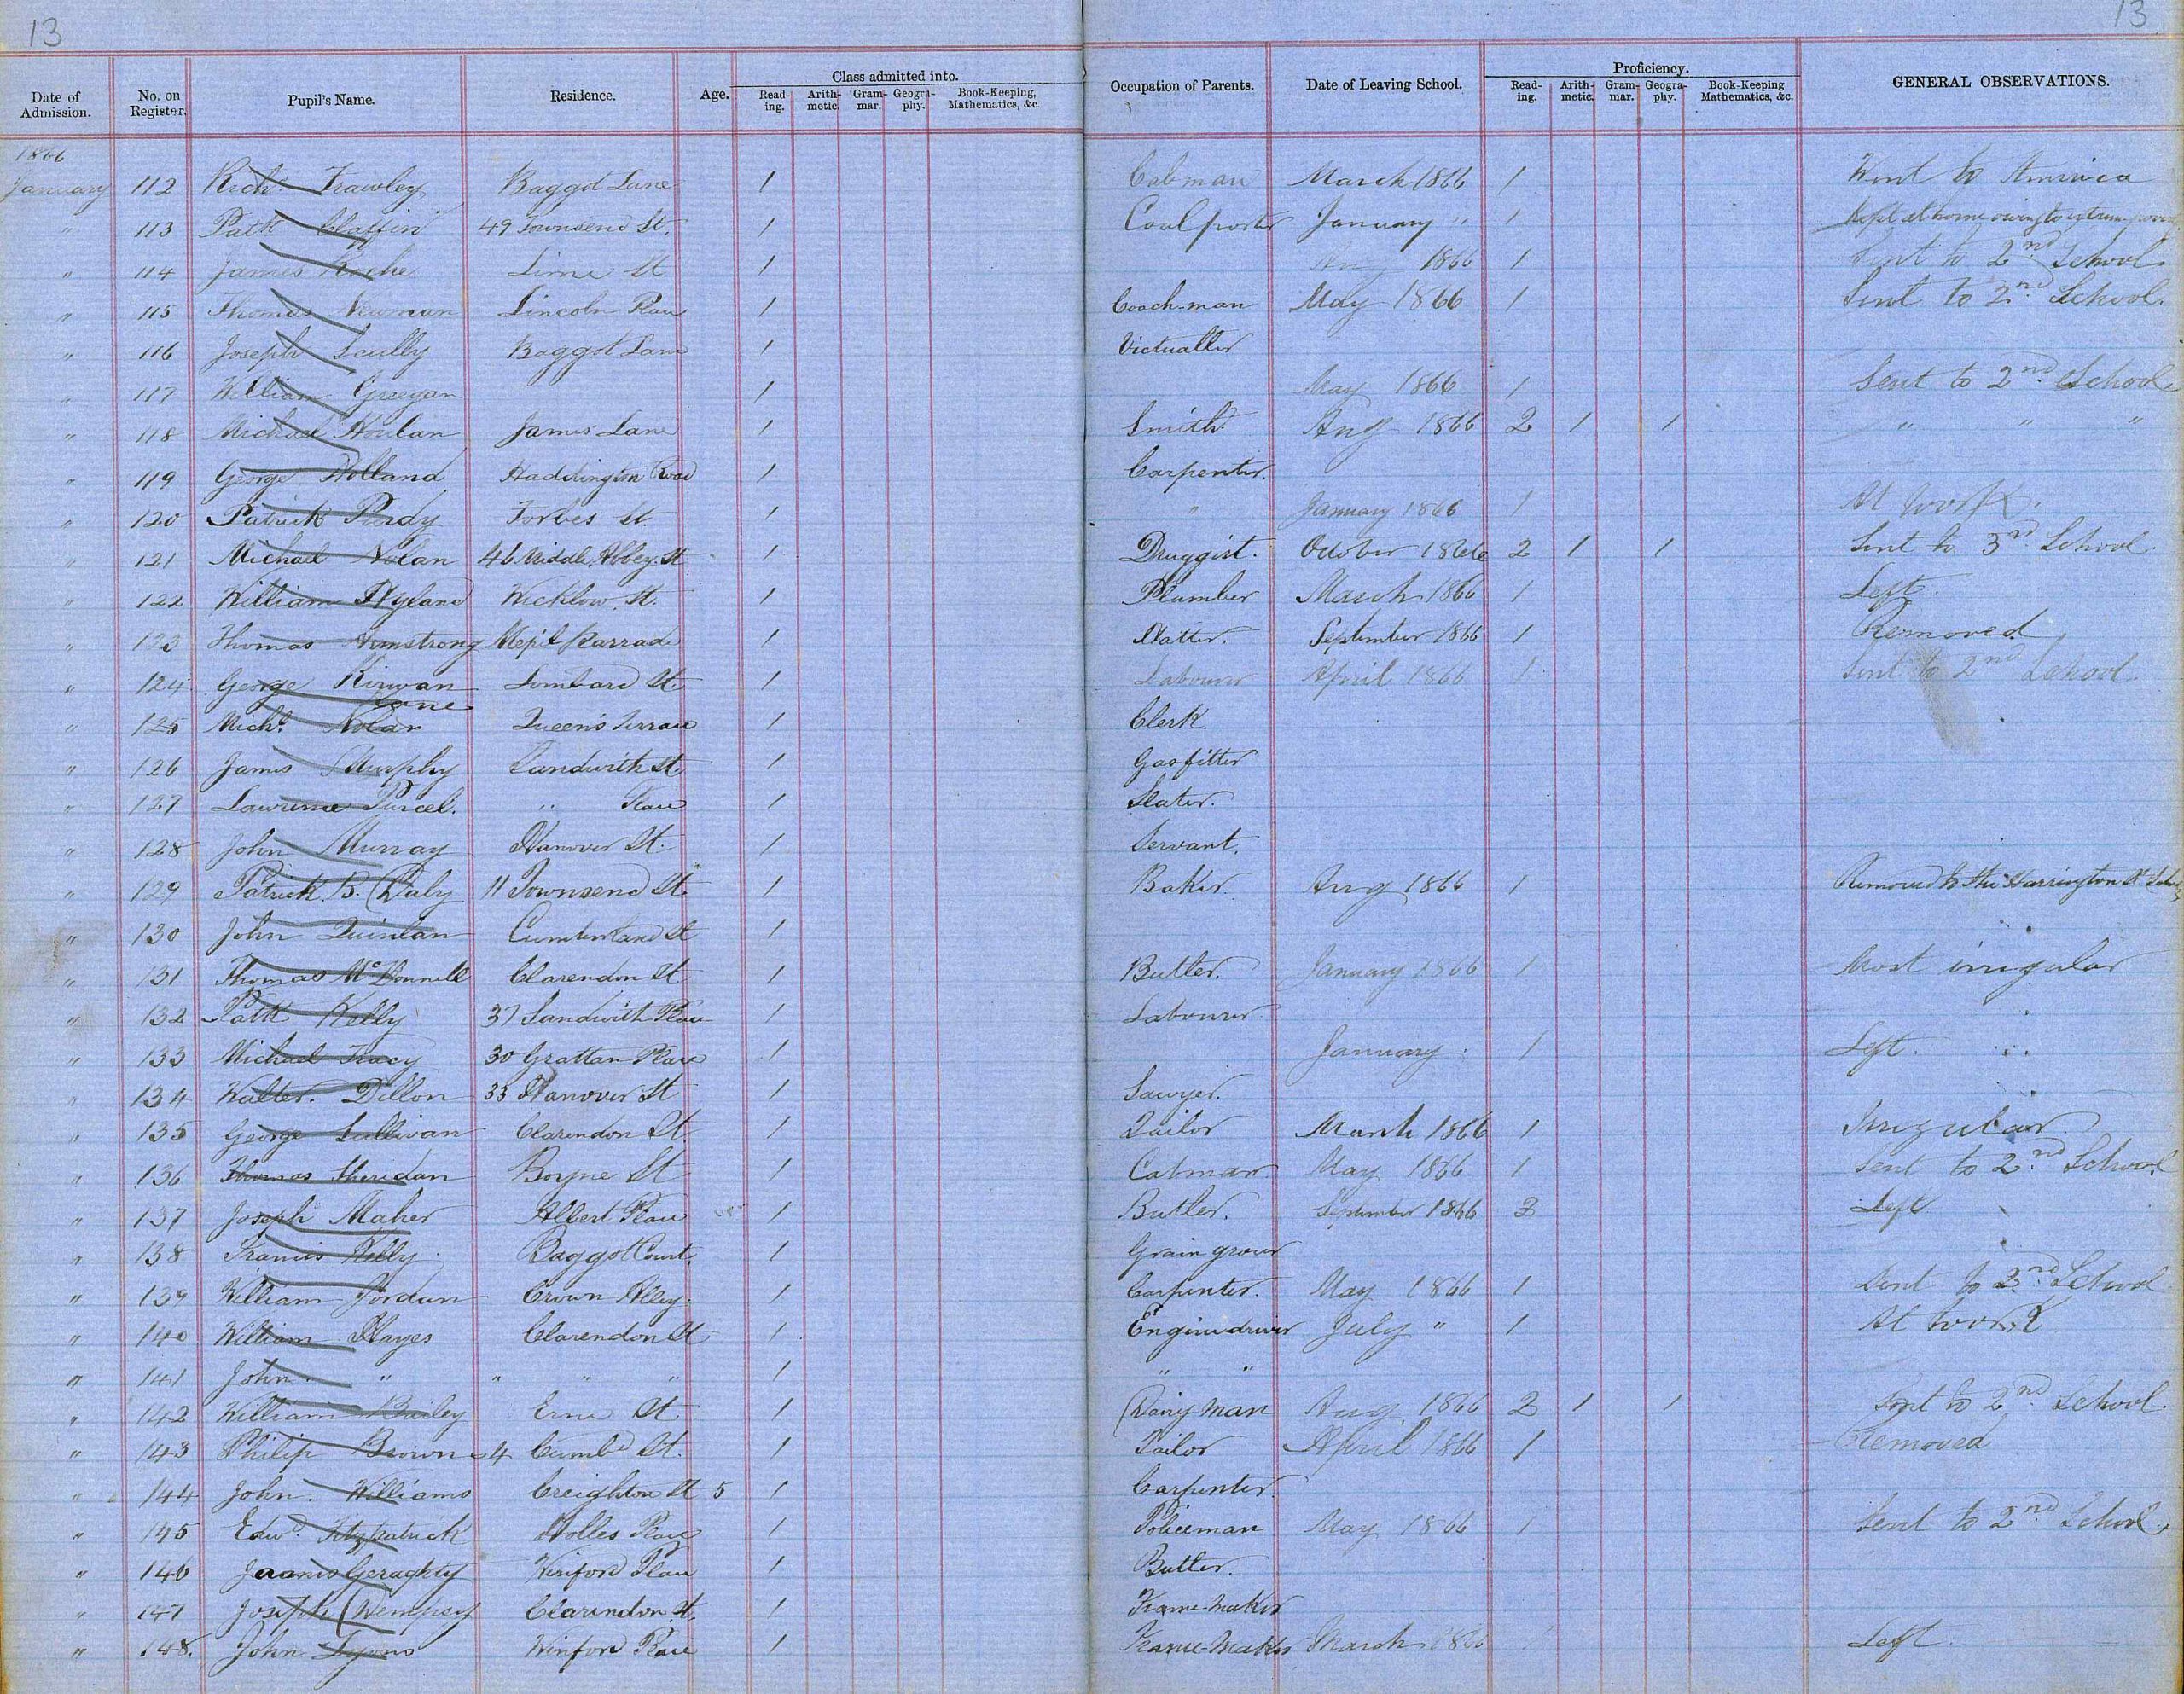 13 13
Date of Admission. No. on Register. Pupil's Name. Residence. Age. Class admitted into. Reading. Arithmetic. Grammar. Geography. Book-Keeping, Mathematics, &c. Occupation of Parents. Date of Leaving School. Proficiency. Reading. Arithmetic. Grammar. Geography. Book-Keeping Mathematics, &c. GENERAL OBSERVATIONS.
1866
January 112 Richd Frawley Baggot Lane 1 Cabman March 1866 1 Went to America
" 113 Patk Claffin 49 Townsend St. 1 Coalporter January " 1 Kept at home owing to extreme poverty
" 114 James Roche Lime St 1 1866 1 Sent to 2nd School
" 115 Thomas Newman Lincoln Place 1 Coach-man May 1866 1 Sent to 2nd School.
" 116 Joseph Scully Baggot Lane 1 Victualler
" 117 William Greegan 1 May 1866 1 Sent to 2nd School
" 118 Michael Houlan James Lane 1 Smith Aug 1866 2 1 1 " " "
" 119 George Holland Haddington Road 1 Carpenter.
" 120 Patrick Purdy Forbes St. 1 " January 1866 1 At work.
" 121 Michael Nolan 46 Middle Abbey St 1 Druggist. October 1866 2 1 1 Sent to 3rd School.
" 122 William Hyland Wicklow St. 1 Plumber March 1866 1 Left.
" 123 Thomas Armstrong Mespil Parrade 1 Hatter. September 1866 1 Removed
" 124 George Kirwan Lombard St. 1 Labourer April 1866 1 Sent to 2nd School.
" 125 Michl. Nolan Lane Queen's Terrace 1 Clerk.
" 126 James Murphy Sandwith St. 1 Gasfitter
" 127 Lawrence Purcel. " Place 1 Slater.
" 128 John Murray Hanover St. 1 Servant.
" 129 Patrick B. Daly 11 Townsend St. 1 Baker. Aug 1866 1 Removed to the Harrington St
" 130 John Quinlan Cumberland St 1
" 131 Thomas McDonnell Clarendon St 1 Butler. January 1866 1 Most irregular
" 132 Patk Kelly 37 Sandwith Place 1 Labourer
" 133 Michael Tracy 30 Grattan Place 1 January 1 Left.
" 134 Walter. Dillon 33 Hanover St 1 Sawyer.
" 135 George Sullivan Clarendon St. 1 Tailor March 1866 1 Irregular
" 136 Thomas Sheridan Boyne St 1 Cabman May 1866 1 Sent to 2nd School
" 137 Joseph Maher Albert Place 1 Butler. September 1866 3 Left
" 138 Francis Kelly Baggot Court. 1 Grain grower
" 139 William Jordan Crown Alley. 1 Carpenter. May 1866 1 Sent to 2nd School
" 140 William Hayes Clarendon St 1 Enginedriver July " 1 At work
" 141 John " " " " 1 " "
" 142 William Bailey Erne St 1 Dairy Man Aug 1866 2 1 1 Sent to 2nd School.
" 143 Philip Browne 4 Cumbd St. 1 Tailor April 1866 1 Removed
" 144 John. Williams Creighton St 5 1 Carpenter.
" 145 Edwd. Fitzpatrick Holles Place 1 Policeman May 1866 1 Sent to 2nd School.
" 146 James Geraghty Winford Place 1 Butler.
" 147 Joseph Dempsey Clarendon St. 1 Frame-maker
" 148. John Lyons Winford Place 1 Frame-Maker March 1866 Left.